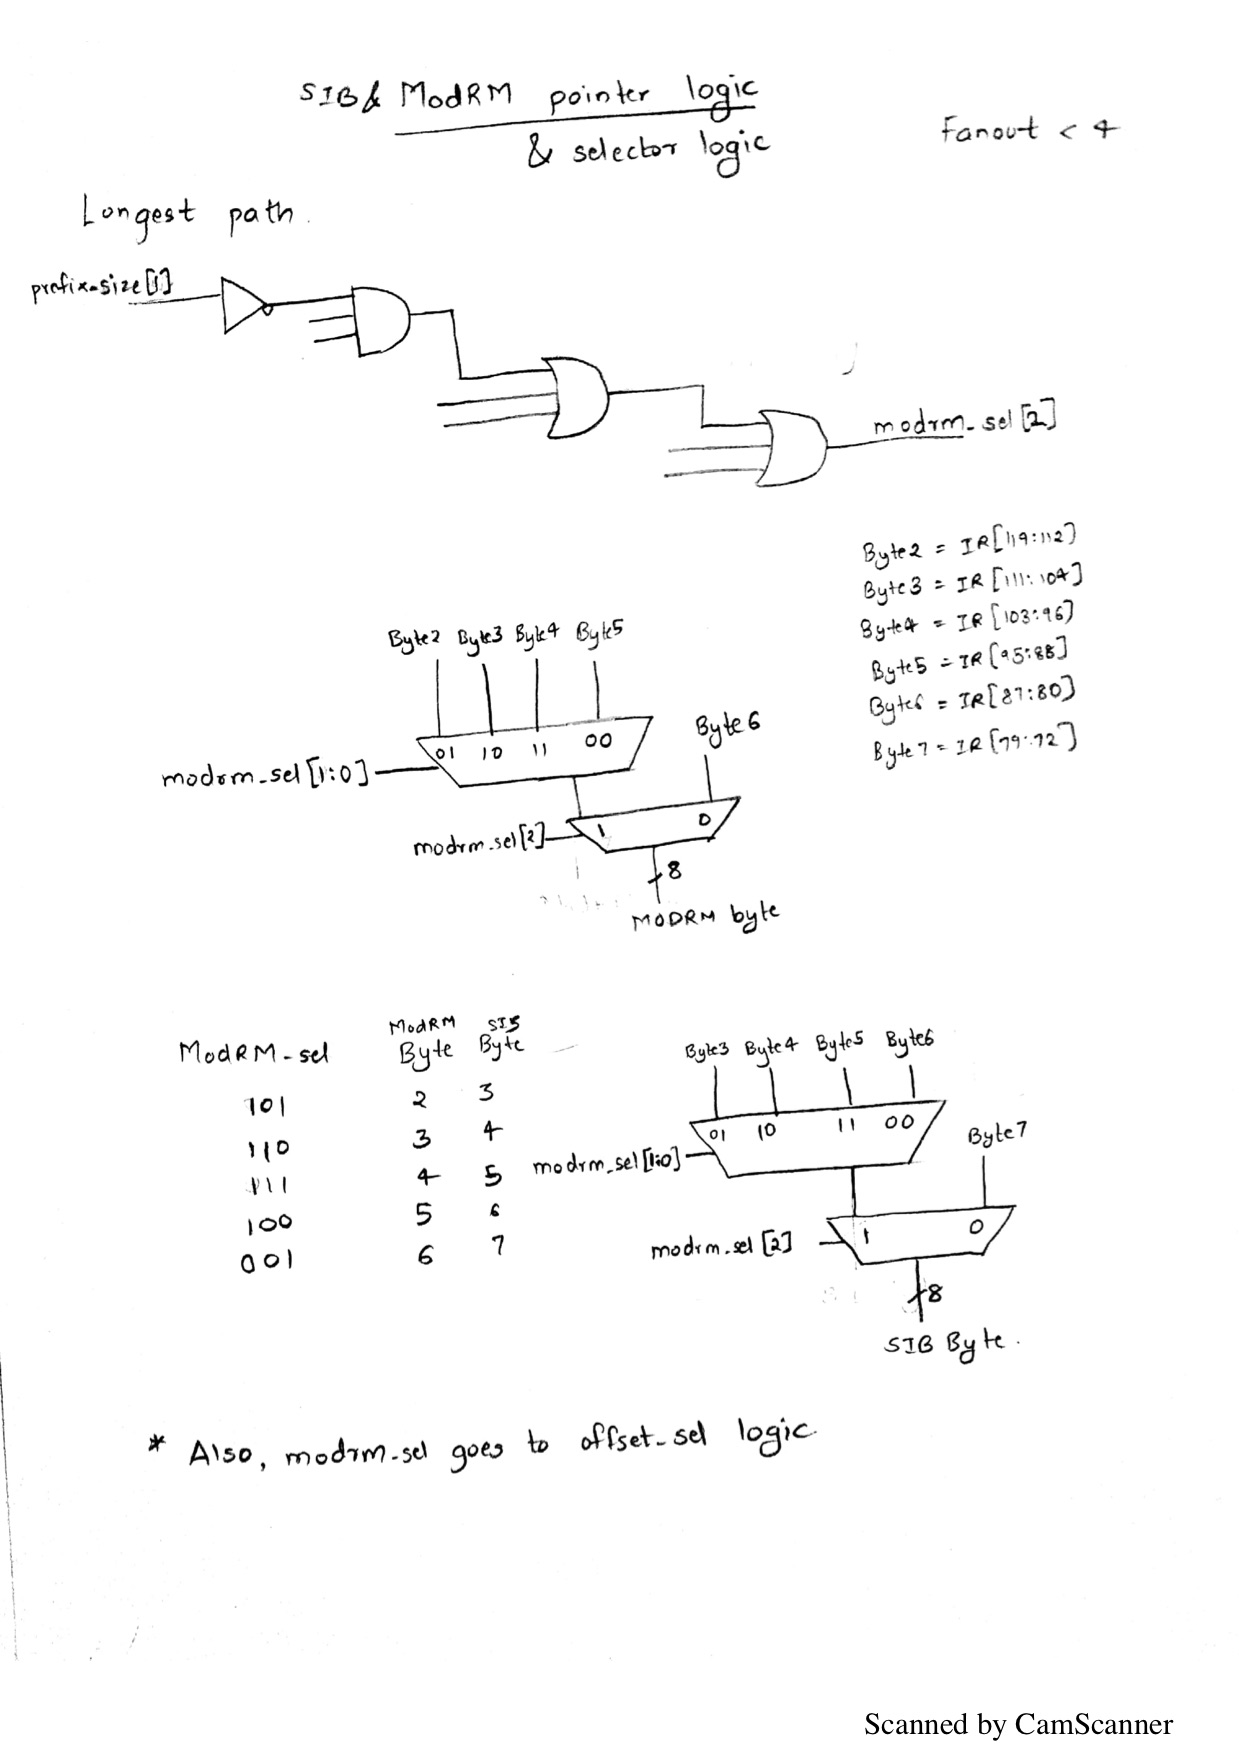 SIB & ModRM pointer logic
& selector logic
Fanout < 4
Longest path.
prefix-size[1]
modrm_sel[2]
Byte2 = IR[119:112]
Byte3 = IR[111:104]
Byte4 = IR[103:96]
Byte5 = IR[95:88]
Byte6 = IR[87:80]
Byte7 = IR[79:72]
Byte2 Byte3 Byte4 Byte5
01 10 11 00
Byte6
modrm_sel[1:0]
1 0
modrm_sel[2]
8
MODRM byte
ModRM_sel ModRM Byte SIB Byte
101 2 3
110 3 4
111 4 5
100 5 6
001 6 7
Byte3 Byte4 Byte5 Byte6
01 10 11 00
Byte7
modrm_sel[1:0]
1 0
modrm_sel[2]
8
SIB Byte.
* Also, modrm_sel goes to offset_sel logic
Scanned by CamScanner